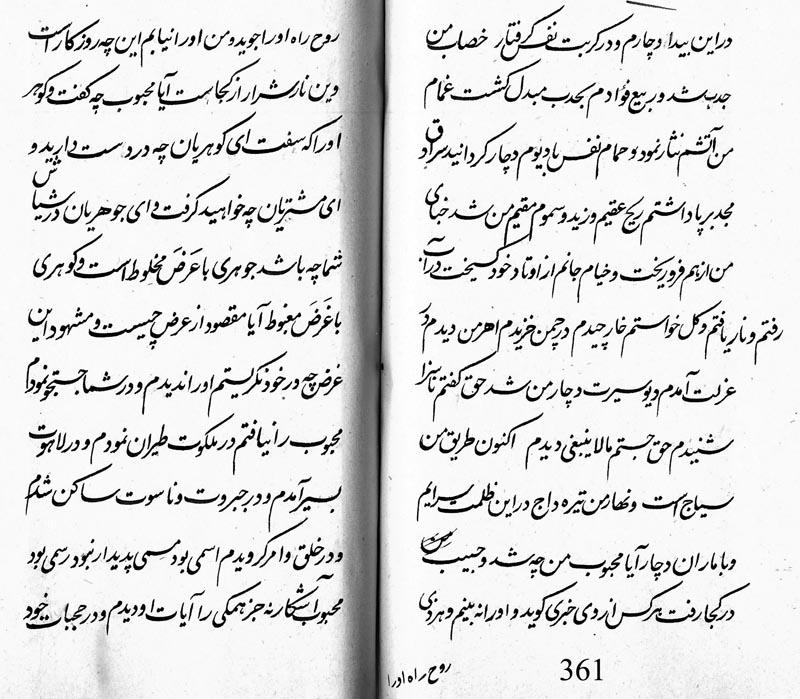 دراین بیدا دچارم و در کربت نفس گرفتار خصاب من
جدب شد و ربیع فؤادم بجدب مبدل گشت غمام
من آتشم نثار نمود و حمام نفس بادبوم دچار گردانید سراق
مجد برپا داشتم ریح عقیم وزید و سموم مقیم من شد خبای
من از هم فرو ریخت و خیام جانم از اوتاد خود گسیخت در آب
رفتم و نار یافتم و گل خواستم خار چیدم در چمن خزیدم اهرمن دیدم در
عزلت آمدم دیو سیرت دچار من شد حق گفتم ناسزا
شنیدم حق جستم مالاینبغی دیدم اکنون طریق من
سیاج است و نهار من تیره داج در این ظلمت سرایم
و با ماران دچار آیا محبوب من چه شد و حبیب من
در کجا رفت هر کس از وی خبری گوید و او را نه بینم و هر ذی
روح راه او را
361
روح راه او را جوید و من او را نیابم این چه روزگار است
وین نار شرار از کجاست آیا محبوب چه گفت و گوهر
او را که سفت ای گوهریان چه در دست دارید و
ای مشتریان چه خواهید گرفت و ای جوهریان در شیاش
شما چه باشد جوهری با عَرَض مخلوط است و گوهری
با غَرَض مغبوط آیا مقصود از عرض چیست و مشهود این
غرض چه در خود نگریستم او را ندیدم و در شما جستجو نمودم
محبوب را نیافتم در ملکوت طیران نمودم و در لاهوت
بسیر آمدم و در جبروت و ناسوت ساکن شدم
و در خلق و امر گرویدم اسمی بود مسمی پدیدار نبود رسمی بود
محبوب آشکار نه جز همگی را آیات او دیدم و در حجبات خود